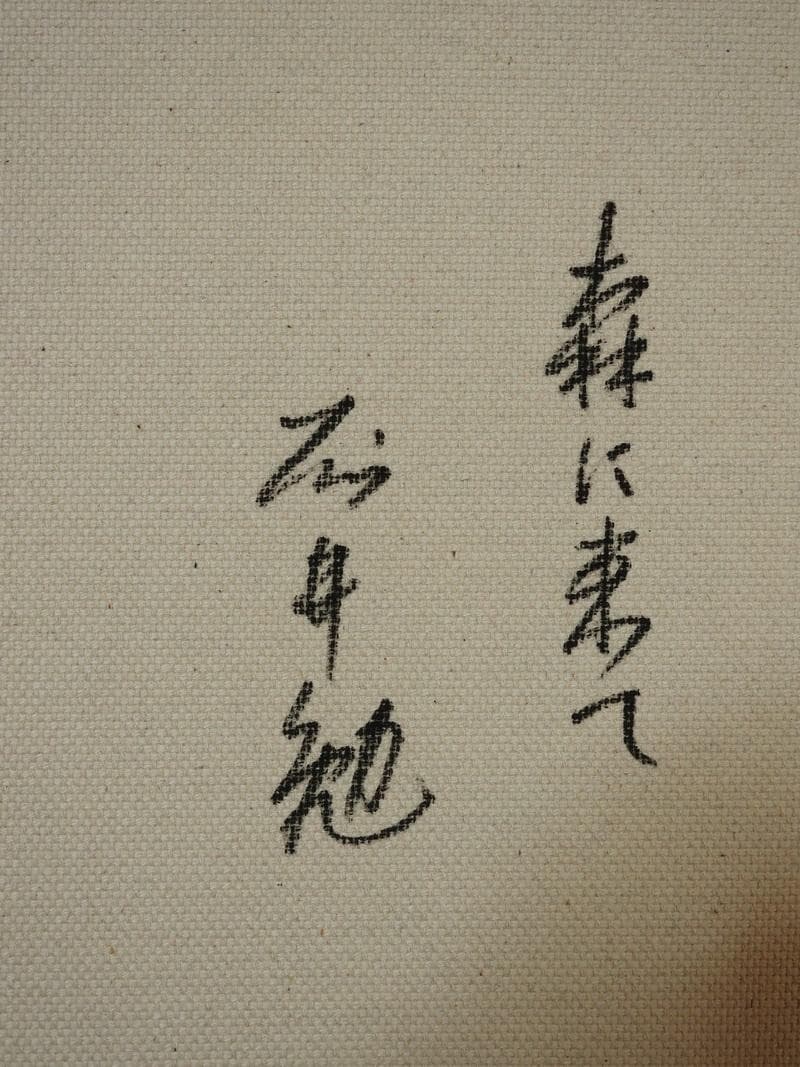 森に来て
石井勉